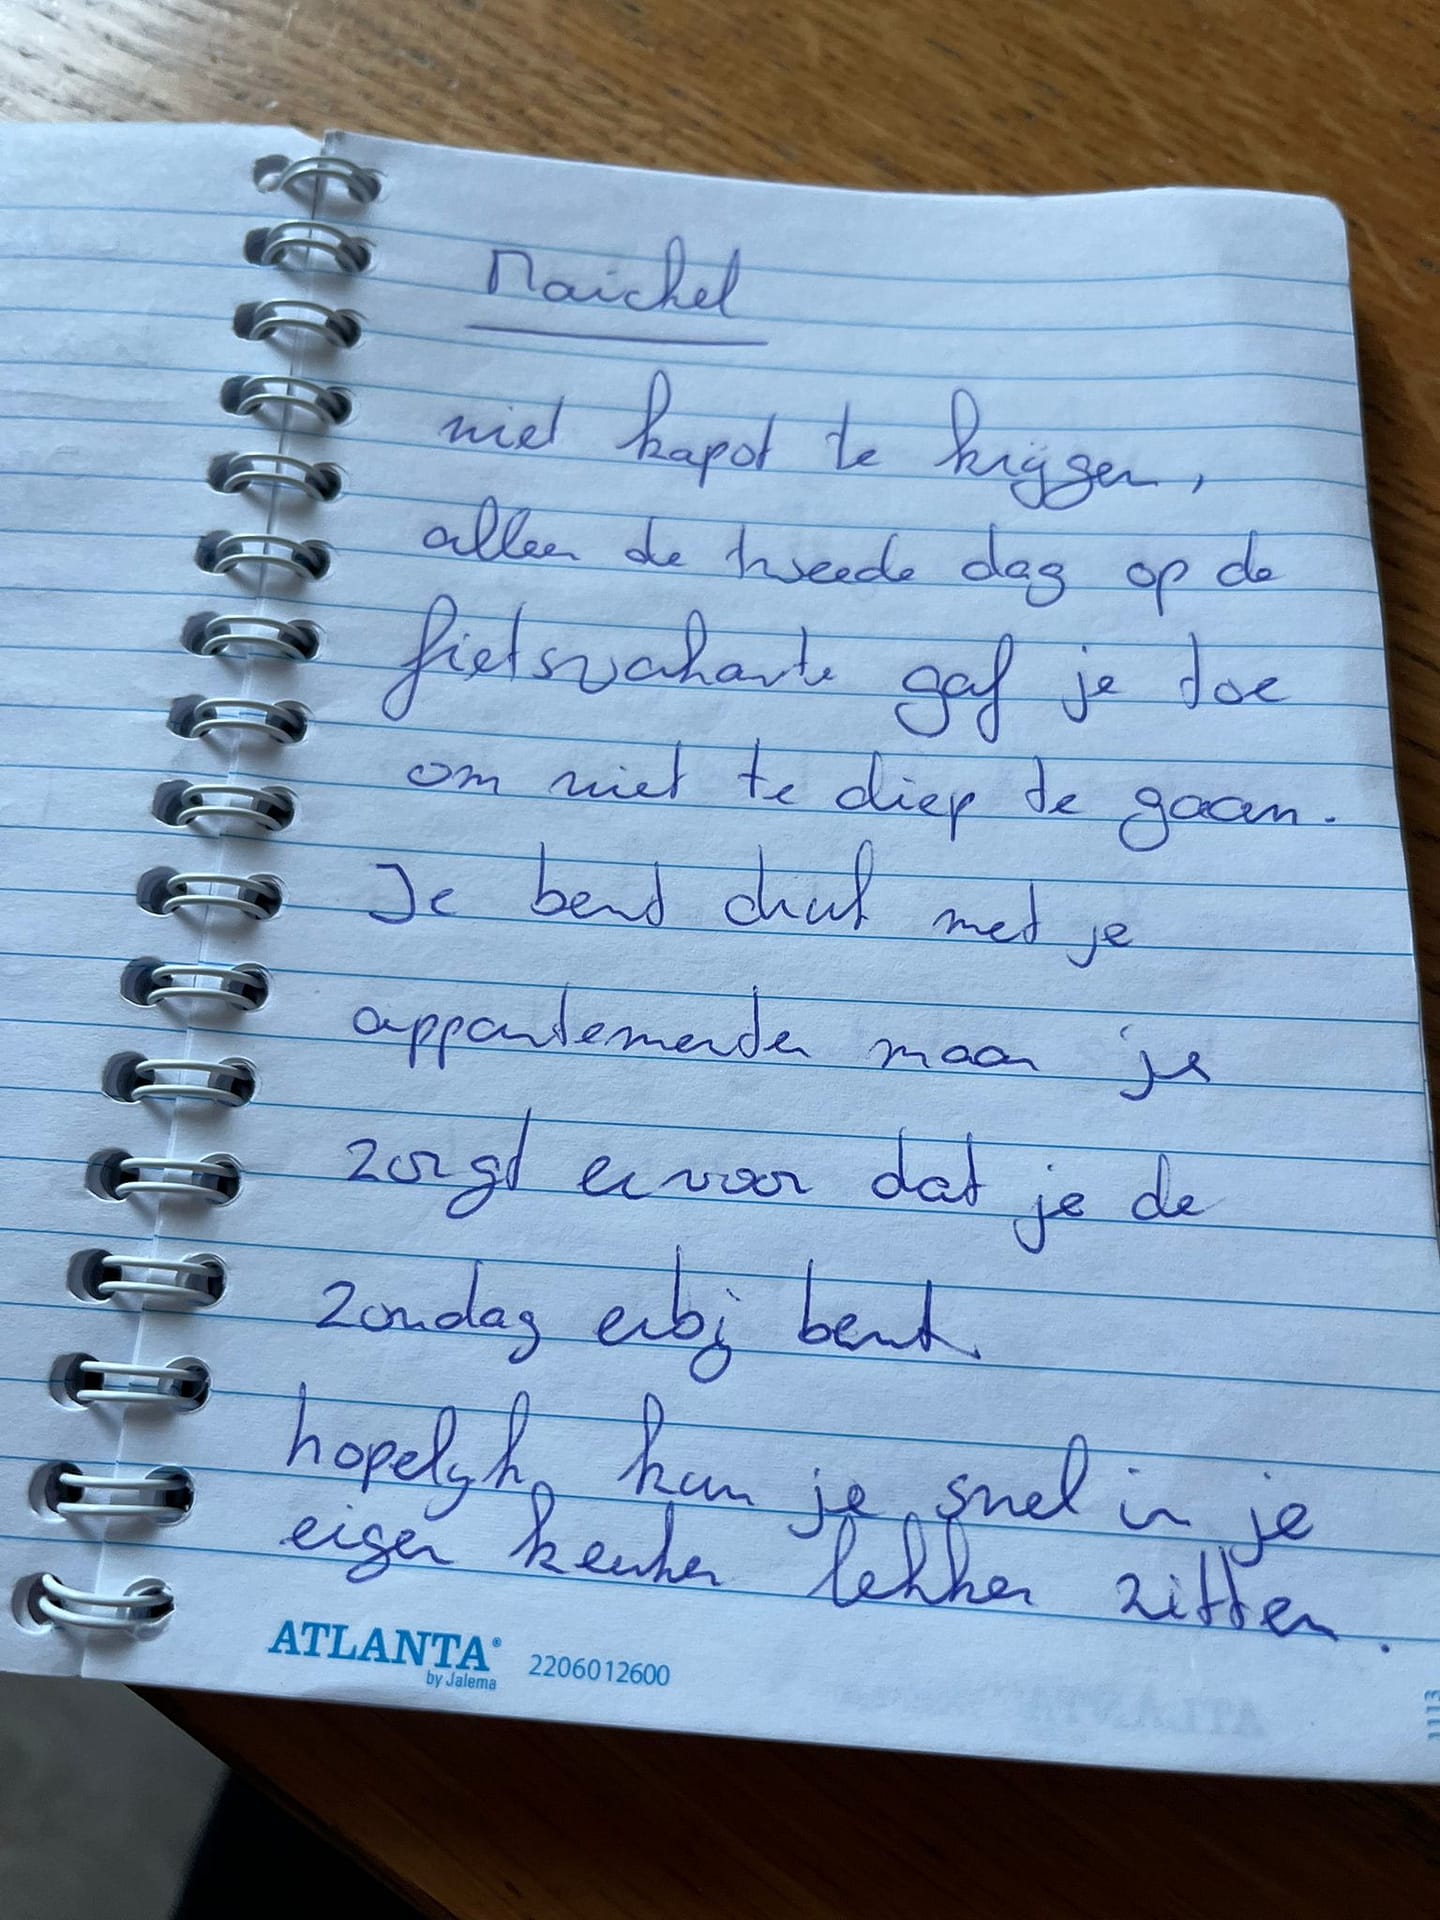 Maichel
niet kapot te krijgen,
alleen de tweede dag op de
fietsvakantie gaf je toe
om niet te diep te gaan.
Je bent druk met je
appartementen maar je
zorgt ervoor dat je de
zondag erbij bent.
hopelijk kan je snel in je
eigen keuken lekker zitten.
ATLANTA®
by Jalema
2206012600
1113